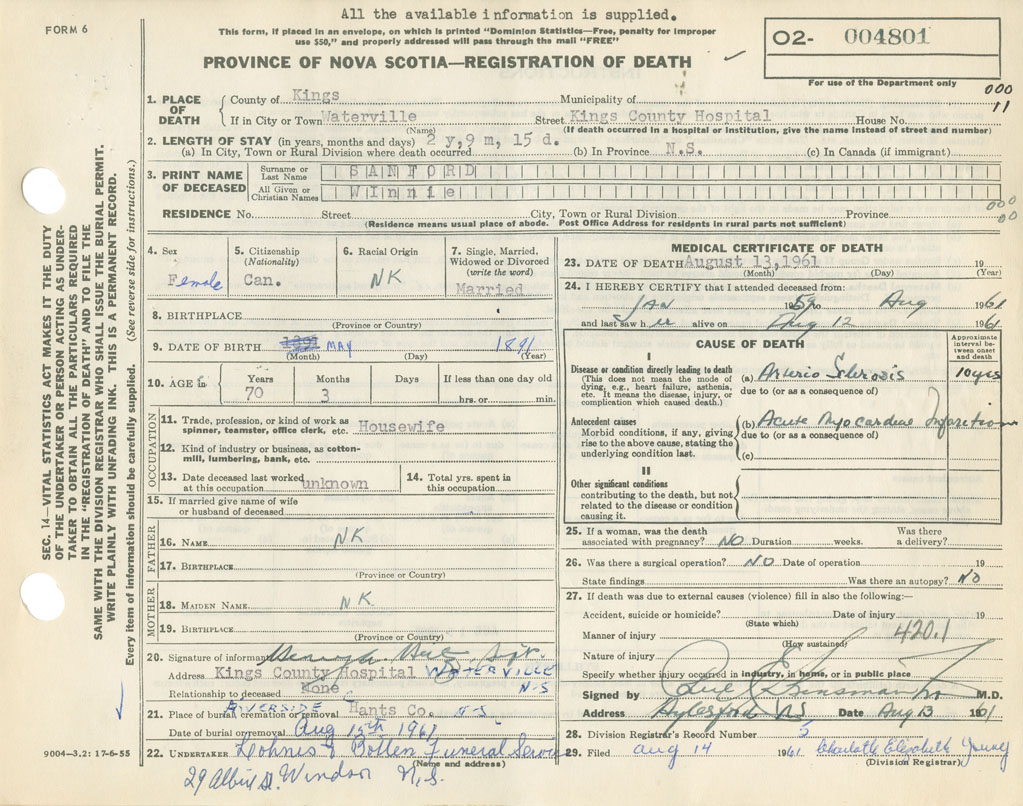 All the available information is supplied.
FORM 6
This form, if placed in an envelope, on which is printed "Dominion Statistics—Free, penalty for improper
use $50," and properly addressed will pass through the mail "FREE"
O2- 004801
PROVINCE OF NOVA SCOTIA—REGISTRATION OF DEATH
For use of the Department only
000
11
1. PLACE OF DEATH County of Kings Municipality of
If in City or Town Waterville Street Kings County Hospital House No.
(Name) (If death occurred in a hospital or institution, give the name instead of street and number)
2. LENGTH OF STAY (in years, months and days) 2 y, 9 m, 15 d.
(a) In City, Town or Rural Division where death occurred (b) In Province N.S. (c) In Canada (if immigrant)
3. PRINT NAME OF DECEASED Surname or Last Name SANFORD
All Given or Christian Names Winnie
000
00
RESIDENCE No. Street City, Town or Rural Division Province
(Residence means usual place of abode. Post Office Address for residents in rural parts not sufficient)
4. Sex Female
5. Citizenship (Nationality) Can.
6. Racial Origin NK
7. Single, Married, Widowed or Divorced (write the word) Married
8. BIRTHPLACE
(Province or Country)
9. DATE OF BIRTH 1891 MAY 1891
(Month) (Day) (Year)
10. AGE Years 70 Months 3 Days If less than one day old hrs. or min.
OCCUPATION
11. Trade, profession, or kind of work as spinner, teamster, office clerk, etc. Housewife
12. Kind of industry or business, as cotton-mill, lumbering, bank, etc.
13. Date deceased last worked at this occupation unknown
14. Total yrs. spent in this occupation
15. If married give name of wife or husband of deceased
FATHER
16. NAME NK
17. BIRTHPLACE
(Province or Country)
MOTHER
18. MAIDEN NAME NK
19. BIRTHPLACE
(Province or Country)
20. Signature of informant
Address Kings County Hospital WATERVILLE
N-S
Relationship to deceased None
21. Place of burial, cremation or removal RIVERSIDE Hants Co. N-S
Date of burial or removal Aug 15th 1961
22. UNDERTAKER Funeral Service
(Name and address)
29 Albert St. Windsor N.S.
9004-3.2: 17-6-55
MEDICAL CERTIFICATE OF DEATH
23. DATE OF DEATH August 13, 1961 19
(Month) (Day) (Year)
24. I HEREBY CERTIFY that I attended deceased from:
JAN 1959 to Aug 1961
and last saw her alive on Aug 12 1961
CAUSE OF DEATH
Approximate interval between onset and death
I
Disease or condition directly leading to death (a) Arterio Sclerosis 10 yrs
(This does not mean the mode of dying, e.g., heart failure, asthenia, etc. It means the disease, injury, or complication which caused death.) due to (or as a consequence of)
Antecedent causes (b) Acute Myocardial Infarction
Morbid conditions, if any, giving rise to the above cause, stating the underlying condition last. due to (or as a consequence of)
(c)
II
Other significant conditions
contributing to the death, but not related to the disease or condition causing it.
25. If a woman, was the death associated with pregnancy? NO Duration weeks. Was there a delivery?
26. Was there a surgical operation? NO Date of operation 19
State findings Was there an autopsy? NO
27. If death was due to external causes (violence) fill in also the following:—
Accident, suicide or homicide? Date of injury 19
(State which)
Manner of injury 420.1
(How sustained)
Nature of injury
Specify whether injury occurred in industry, in home, or in public place
Signed by M.D.
Address Aylesford NS Date Aug 13 1961
28. Division Registrar's Record Number 5
29. Filed Aug 14 1961 Charlotte Elizabeth Young
(Division Registrar)
SEC. 14—VITAL STATISTICS ACT MAKES IT THE DUTY
OF THE UNDERTAKER OR PERSON ACTING AS UNDER-
TAKER TO OBTAIN ALL THE PARTICULARS REQUIRED
IN THE "REGISTRATION OF DEATH" AND TO FILE THE
SAME WITH THE DIVISION REGISTRAR WHO SHALL ISSUE THE BURIAL PERMIT.
WRITE PLAINLY WITH UNFADING INK. THIS IS A PERMANENT RECORD.
Every item of information should be carefully supplied. (See reverse side for instructions.)